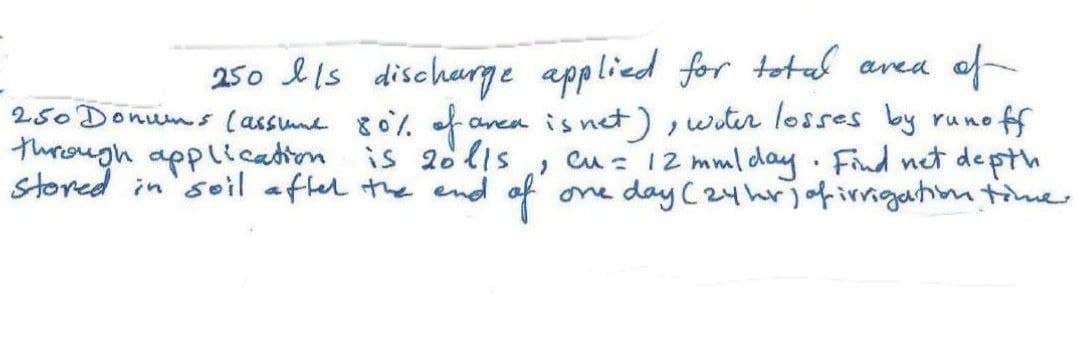 250 l/s discharge applied for total area of
250 Donums (assume 80% of area is net), water losses by runoff
through application is 20 l/s, cu = 12 mm/day. Find net depth
stored in soil after the end of one day (24 hr) of irrigation time.